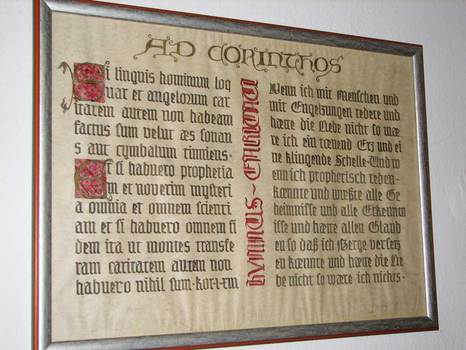 AD CORINTHOS
Si linguis hominum loq
uar et angelorum car
itatem autem non habeam
factus sum velut aes sonan
s aut cymbalum tinniens·
Et si habuero prophetia
m et noverim mysteri
a omnia et omnem scienti
am et si habuero omnem fi
dem ita ut montes transfe
ram caritatem autem non
habuero nihil sum·kor·I·
HYMNUS ~
Wenn ich mit Menschen und
mit Engelszungen redete und
haette die Liebe nicht so wae
re ich ein toenend Erz und ei
ne klingende Schelle·Und w
enn ich prophetisch reden
koennte und wueßte alle Ge
heimnisse und alle Erkenntn
isse und haette allen Glaub
en so daß ich Berge versetz
en koennte und haette die Lie
be nicht so waere ich nichts·